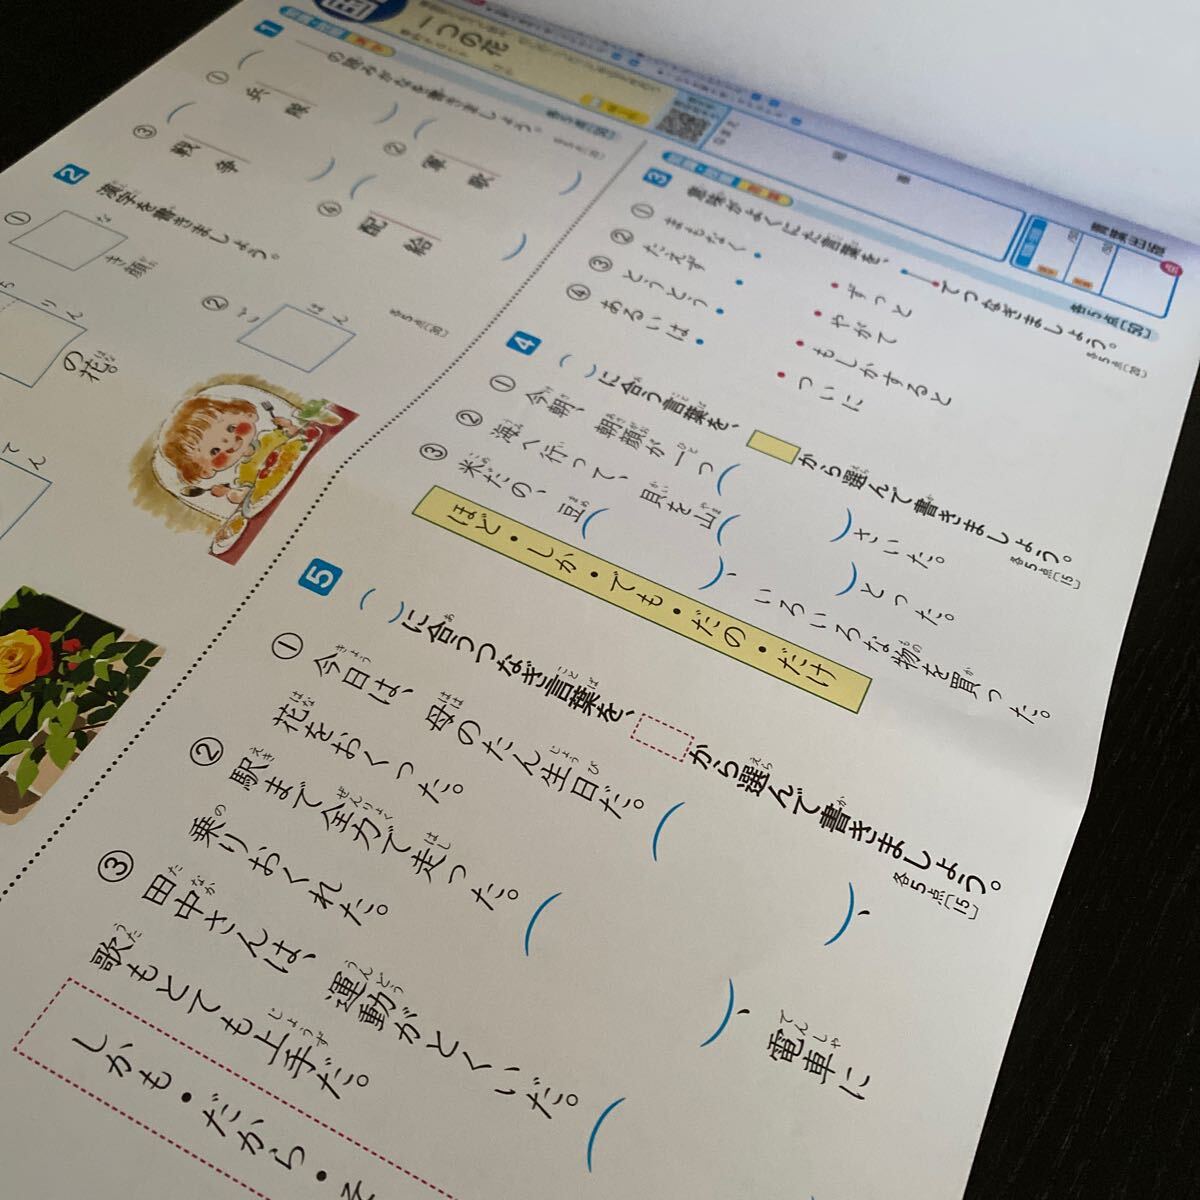 一つの花
1
の読みがなを書きましょう。
各5点〔20〕
① 兵隊
② 軍歌
③ 戦争
④ 配給
2 漢字を書きましょう。
各5点〔30〕
① な き顔
② ご はん
りん の花。
てん
青葉出版
各5点〔50〕
3 意味がよくにた言葉を、 でつなぎましょう。
各5点〔20〕
① まもなく
② たえず
③ とうとう
④ あるいは
ずっと
やがて
もしかすると
ついに
4 ( )に合う言葉を、 から選んで書きましょう。
各5点〔15〕
① 今朝、朝顔が一つ( )さいた。
② 海へ行って、貝を山( )とった。
③ 米だの、豆( )、いろいろな物を買った。
ほど・しか・でも・だの・だけ
5 ( )に合うつなぎ言葉を、 から選んで書きましょう。
各5点〔15〕
① 今日は、母のたん生日だ。( )、
花をおくった。
② 駅まで全力で走った。( )、電車に
乗りおくれた。
③ 田中さんは、運動がとくいだ。(
歌もとても上手だ。
しかも・だから・そ